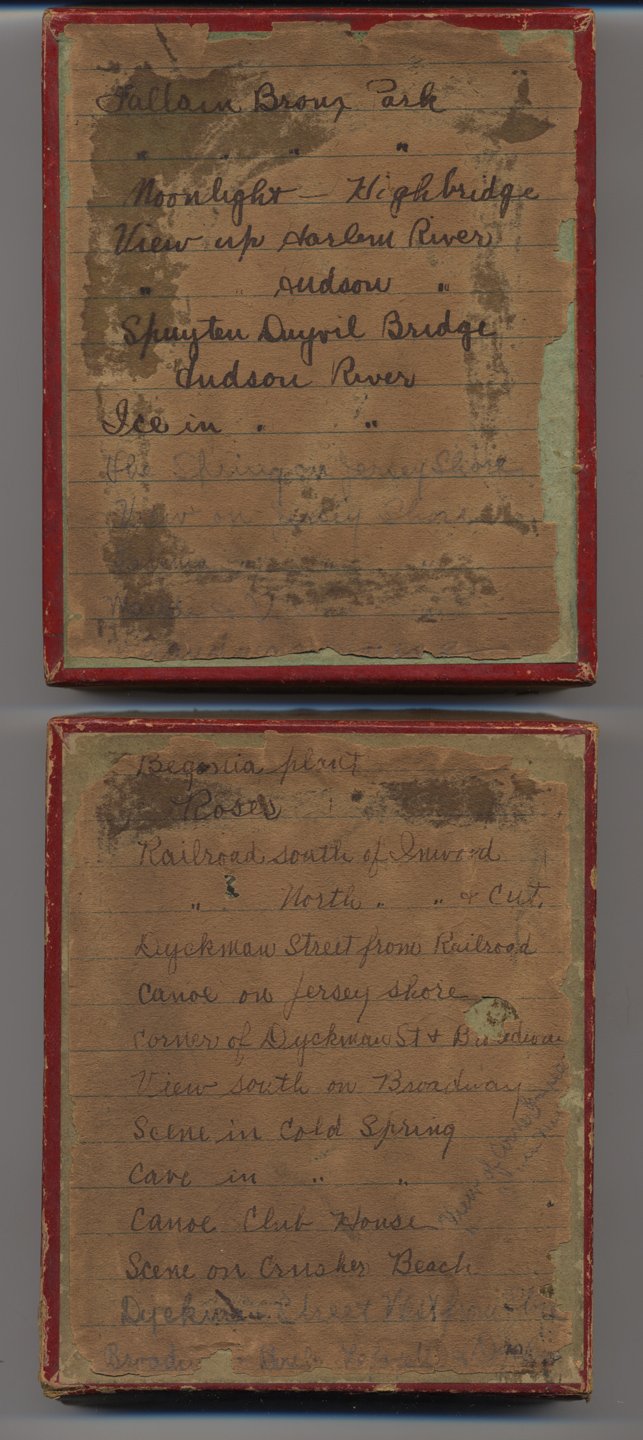 Falls in Bronx Park
" " " "
Moonlight — Highbridge
View up Harlem River
" " Hudson "
Spuyten Duyvil Bridge
Hudson River
Ice in " "
the Spring on Jersey Shore
View on Jersey Shore
Begonia plant
Roses
Railroad south of Inwood
" North " " & Cut.
Dyckman Street from Railroad
Canoe on Jersey shore
Corner of Dyckman St & Broadway
View south on Broadway
Scene in Cold Spring
Cave in " "
Canoe Club House
View of
Scene on Crusher Beach
Dyckman Street West from